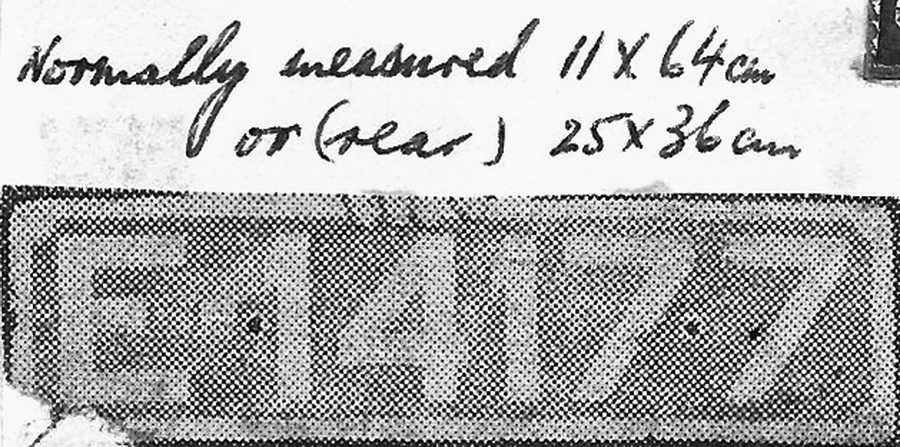 Normally measured 11 X 64 cm
or (rear) 25 X 36 cm
E14177